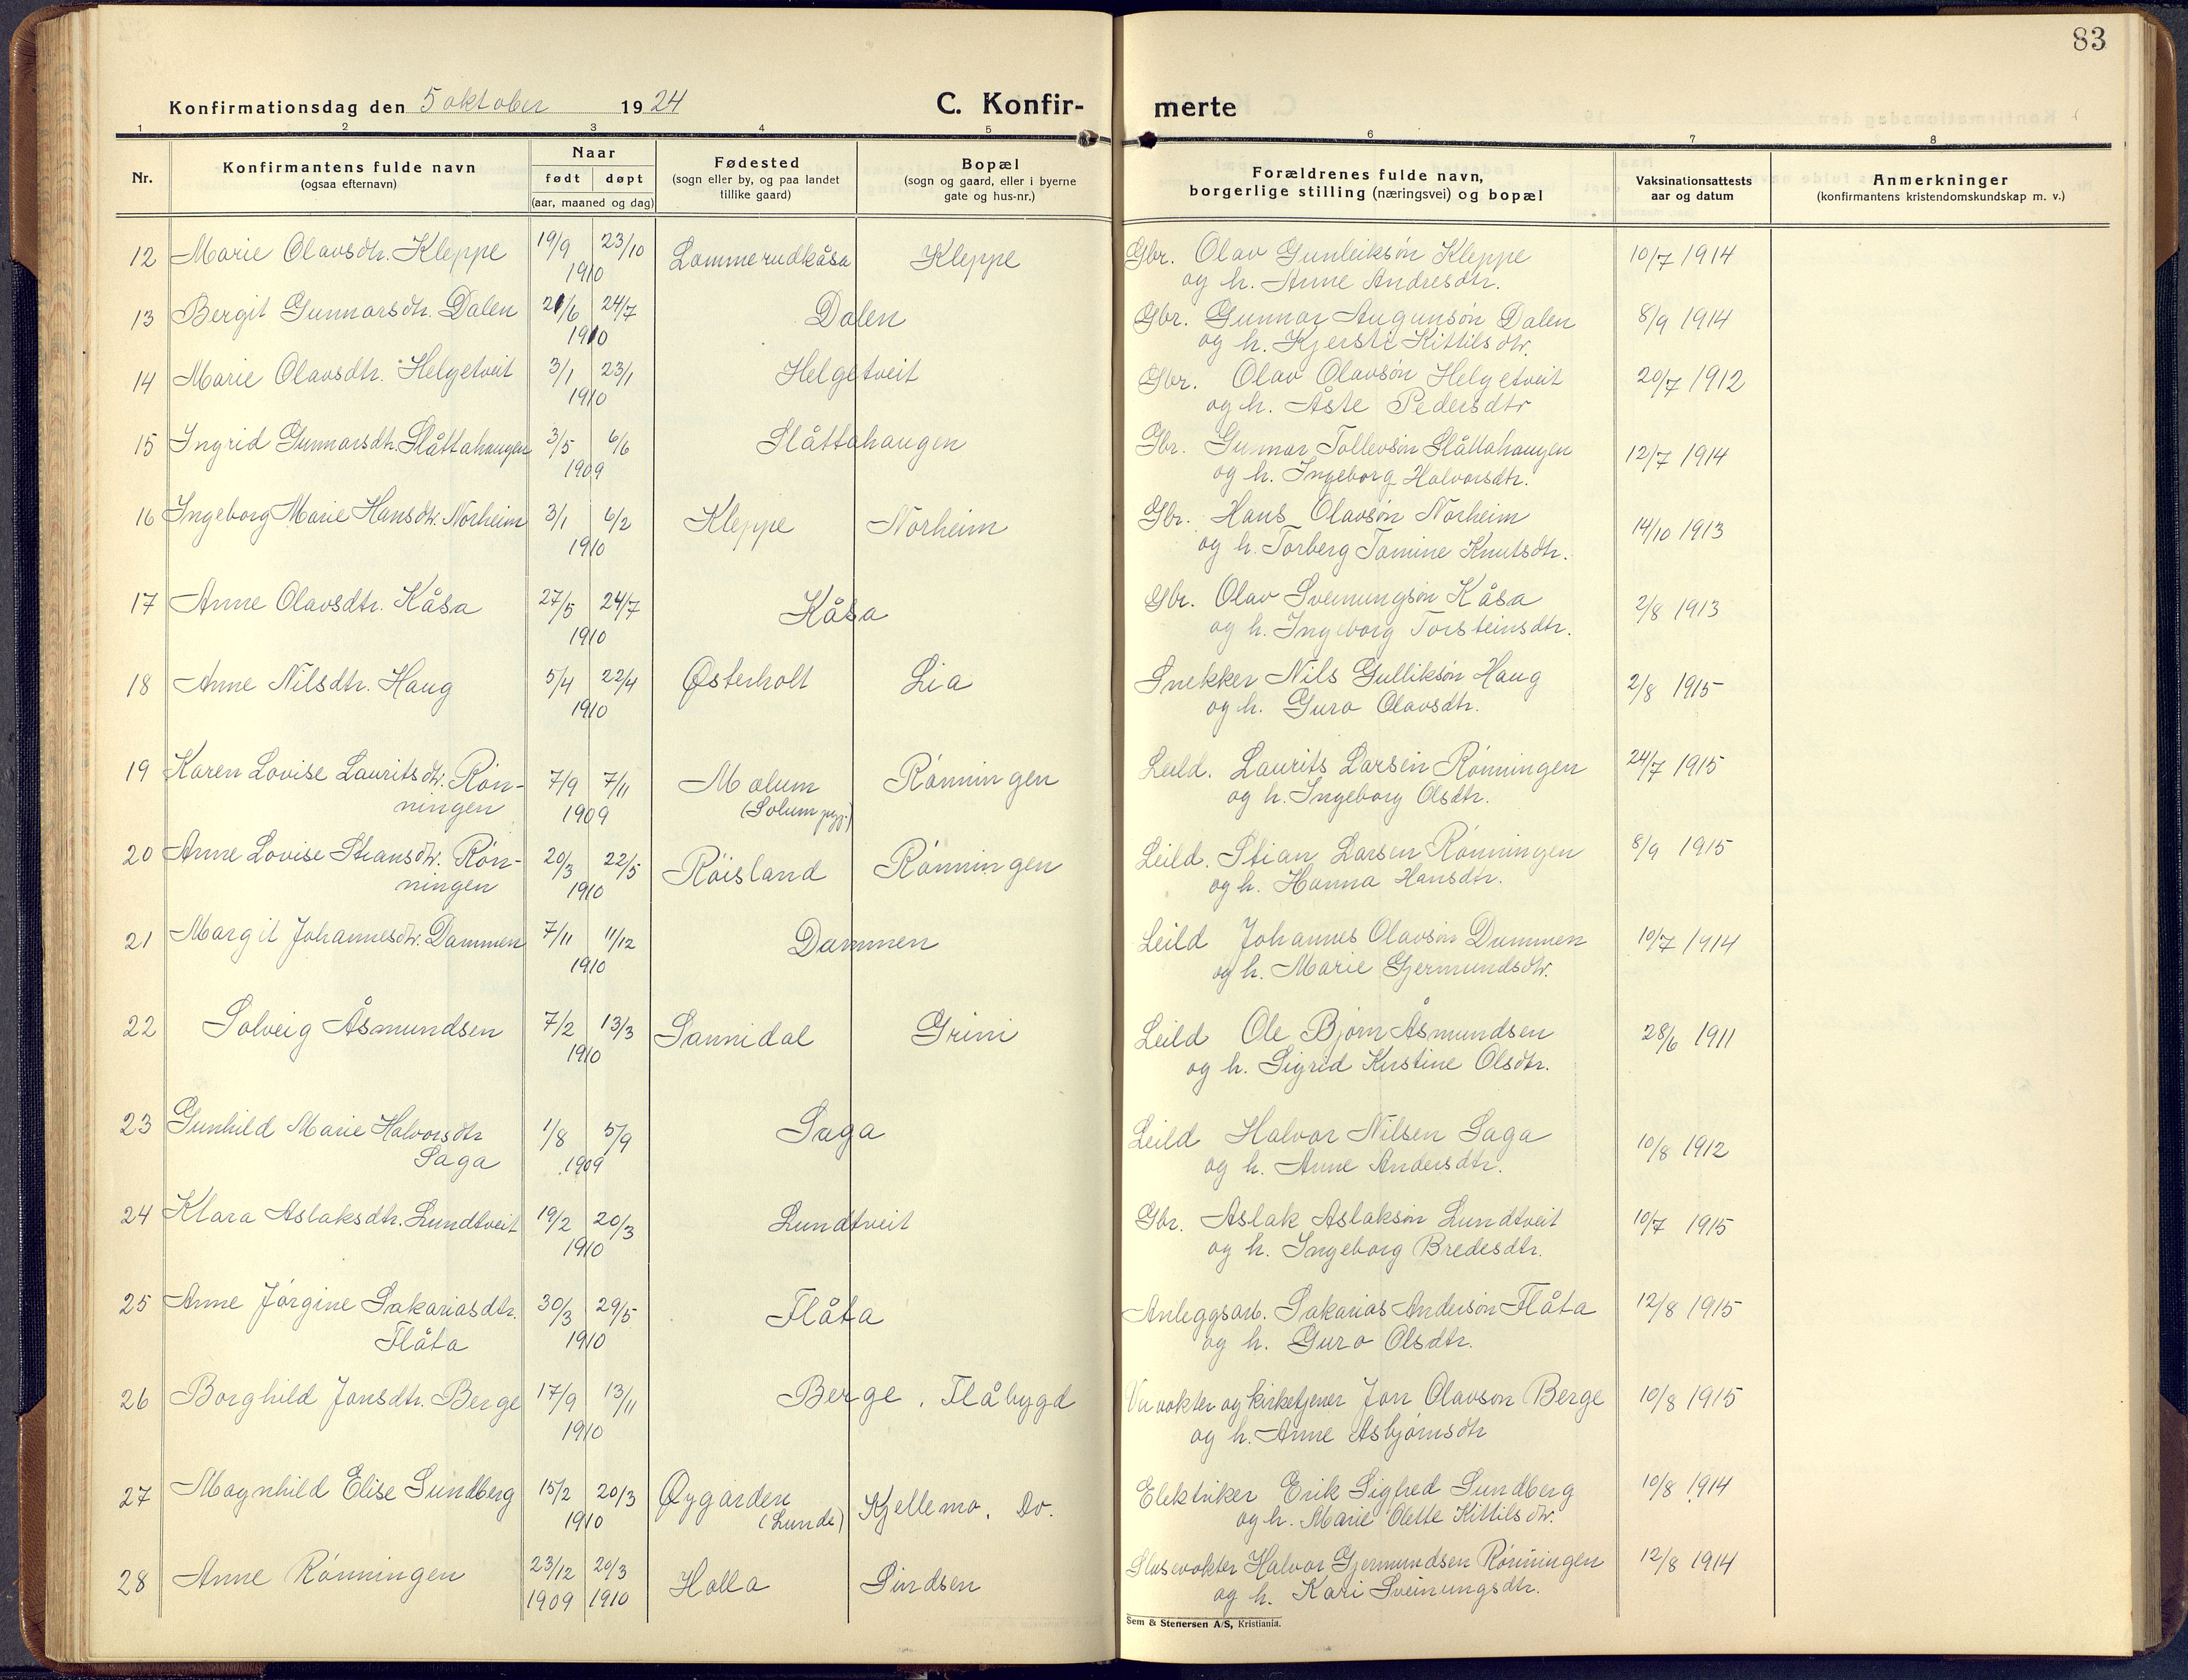 83
Konfirmationsdag den 5 oktober 1924
C. Konfir-
merte
1 2 3 4 5 6 7 8
Nr.
Konfirmantens fulde navn
(ogsaa efternavn)
Naar
født døpt
(aar, maaned og dag)
Fødested
(sogn eller by, og paa landet
tillike gaard)
Bopæl
(sogn og gaard, eller i byerne
gate og hus-nr.)
Forældrenes fulde navn,
borgerlige stilling (næringsvei) og bopæl
Vaksinationsattests
aar og datum
Anmerkninger
(konfirmantens kristendomskundskap m. v.)
12 Marie Olavsdtr. Kleppe 19/9 23/10 Lammerudkåsa Kleppe Gbr. Olav Gunleiksøn Kleppe 10/7 1914
1910 og h. Anne Andresdtr.
13 Bergit Gunnarsdtr. Dalen 21/6 24/7 Dalen Gbr. Gunnar Augunsøn Dalen 8/9 1914
1910 og h. Kjersti Kittilsdtr.
14 Marie Olavsdtr. Helgetveit 3/1 23/1 Helgetveit Gbr. Olav Olavsøn Helgetveit 20/7 1912
1910 og h. Åste Pedersdtr
15 Ingrid Gunnarsdtr. Slåttahaugen 3/5 6/6 Slåttahaugen Gbr. Gunnar Tollevsøn Slåttahaugen 12/7 1914
1909 og h. Ingeborg Halvorsdtr.
16 Ingeborg Marie Hansdtr. Norheim 3/1 6/2 Kleppe Norheim Gbr. Hans Olavsøn Norheim 14/10 1913
1910 og h. Torberg Tomine Knutsdtr.
17 Anne Olavsdtr. Kåsa 27/5 24/7 Kåsa Gbr. Olav Svenungsøn Kåsa 2/8 1913
1910 og h. Ingeborg Torsteinsdtr.
18 Anne Nilsdtr. Haug 5/4 22/4 Østerholt Lia Snekker Nils Gulliksøn Haug 2/8 1915
1910 og h. Guro Olavsdtr.
19 Karen Lovise Lauritsdtr. Røn- 7/9 7/11 Mælum Rønningen Leild. Laurits Larsen Rønningen 24/7 1915
ningen 1909 (Solum pgj.) og h. Ingeborg Olsdtr.
20 Anne Lovise Stiansdtr. Røn- 20/3 22/5 Røisland Rønningen Leild. Stian Larsen Rønningen 8/9 1915
ningen 1910 og h. Hanna Hansdtr.
21 Margit Johannesdtr. Dammen 7/11 11/12 Dammen Leild Johannes Olavsøn Dammen 10/7 1914
1910 og h. Marie Gjermundsdtr.
22 Solveig Åsmundsen 7/2 13/3 Sannidal Grini Leild Ole Bjørn Åsmundsen 28/6 1911
1910 og h. Sigrid Kirstine Olsdtr.
23 Gunhild Marie Halvorsdtr 1/8 5/9 Saga Leild Halvor Nilsen Saga 10/8 1912
Saga 1909 og h. Anne Andersdtr.
24 Klara Aslaksdtr. Lundtveit 19/2 20/3 Lundtveit Gbr. Aslak Aslaksøn Lundtveit 10/7 1915
1910 og h. Ingeborg Bredesdtr.
25 Anne Jørgine Sakariasdtr. 30/3 29/5 Flåta Anleggsarb. Sakarias Andersøn Flåta 12/8 1915
Flåta 1910 og h. Guro Olsdtr.
26 Borghild Jonsdtr. Berge 17/9 13/11 Berge, Flåbygd vokter og kirketjener Jon Olavson Berge 10/8 1915
1910 og h. Anne Asbjørnsdtr
27 Magnhild Elise Sundberg 15/2 20/3 Øygarden Kjellemo, Do. Elektriker Erik Sigfred Sundberg 10/8 1914
1910 (Lunde) og h. Marie Olette Kittilsdtr.
28 Anne Rønningen 23/12 20/3 Holla Sindsen Slusevokter Halvor Gjermundsen Rønningen 12/8 1914
1909 1910 og h. Kari Sveinungsdtr.
Sem & Stenersen A/S, Kristiania.